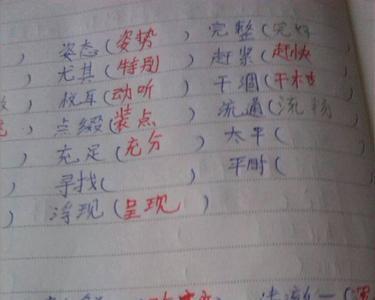 ) 姿态(姿势 ) 完整(完好
) 尤其(特别 ) 赶紧(赶快
) 悦耳(动听 ) 干涸(干枯
) 点缀(装点 ) 流通(流畅
) 充足(充分 ) 太平(
) 寻找( ) 平时(
) 浮现(呈现 )